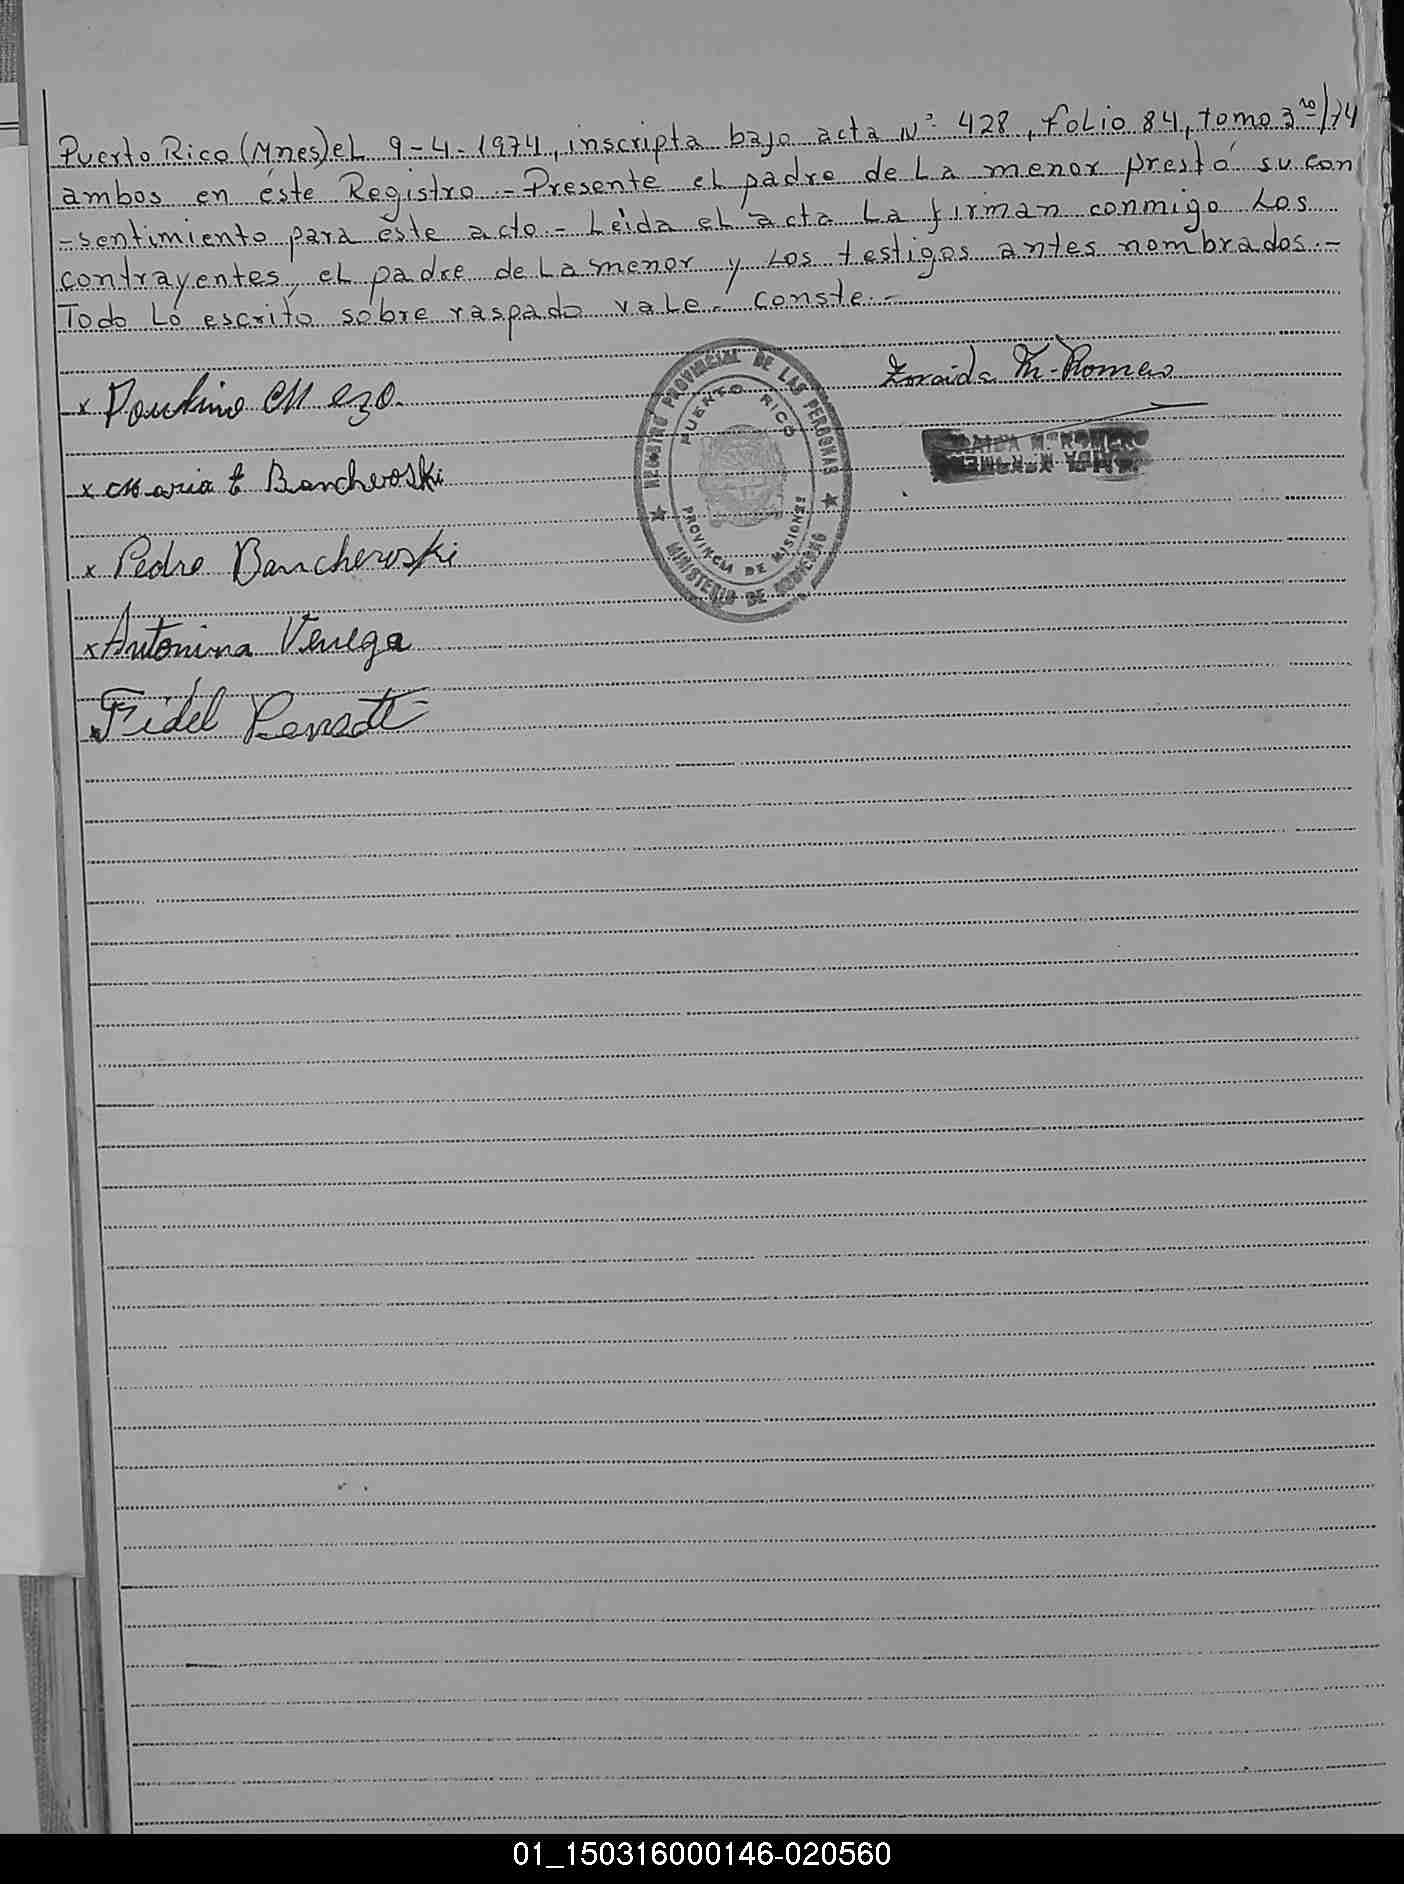 Puerto Rico (Mnes) el 9-4-1974, inscripta bajo acta Nº 428, folio 84, tomo 3ro/74
ambos en éste Registro.- Presente el padre de la menor prestó su con
-sentimiento para éste acto.- Leída el acta la firman conmigo los
contrayentes, el padre de la menor y los testigos antes nombrados.-
Todo lo escrito sobre raspado vale.- conste.-
Zoraida M. Romero
x Paulino Mezo.
x Maria E Bancheroski
x Pedro Bancheroski
x Antonina Venega
x Fidel
REGISTRO PROVINCIAL DE LAS PERSONAS
PUERTO RICO
PROVINCIA DE MISIONES
MINISTERIO DE GOBIERNO
01_150316000146-020560